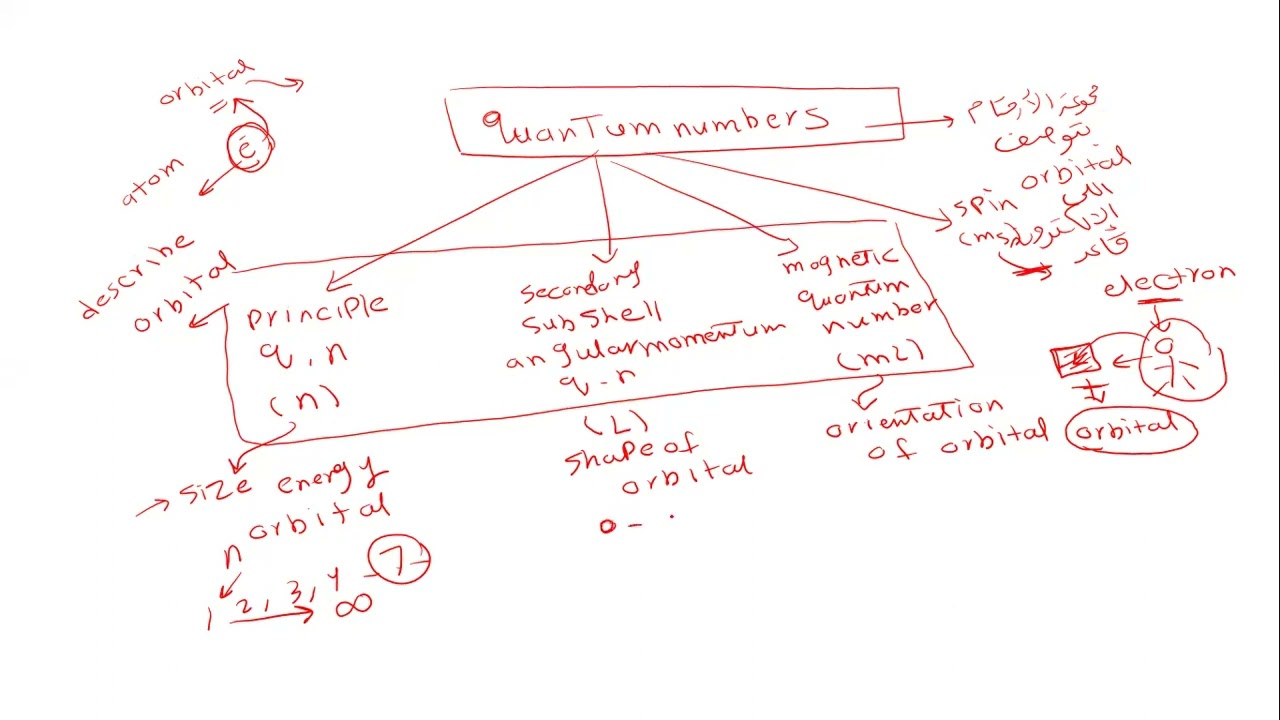 orbital
e
atom
describe
orbital
quantum numbers
مجموعة الأرقام
توصف
orbital
اللي
الالكترون
قاعد
spin
(ms)
principle
q.n
(n)
secondary
subshell
angular momentum
q-n
(L)
magnetic
quantum
number
(mL)
size energy
orbital
n
1 2, 3, 4 - 7
∞
shape of
orbital
0 -
orientation
of orbital
electron
orbital